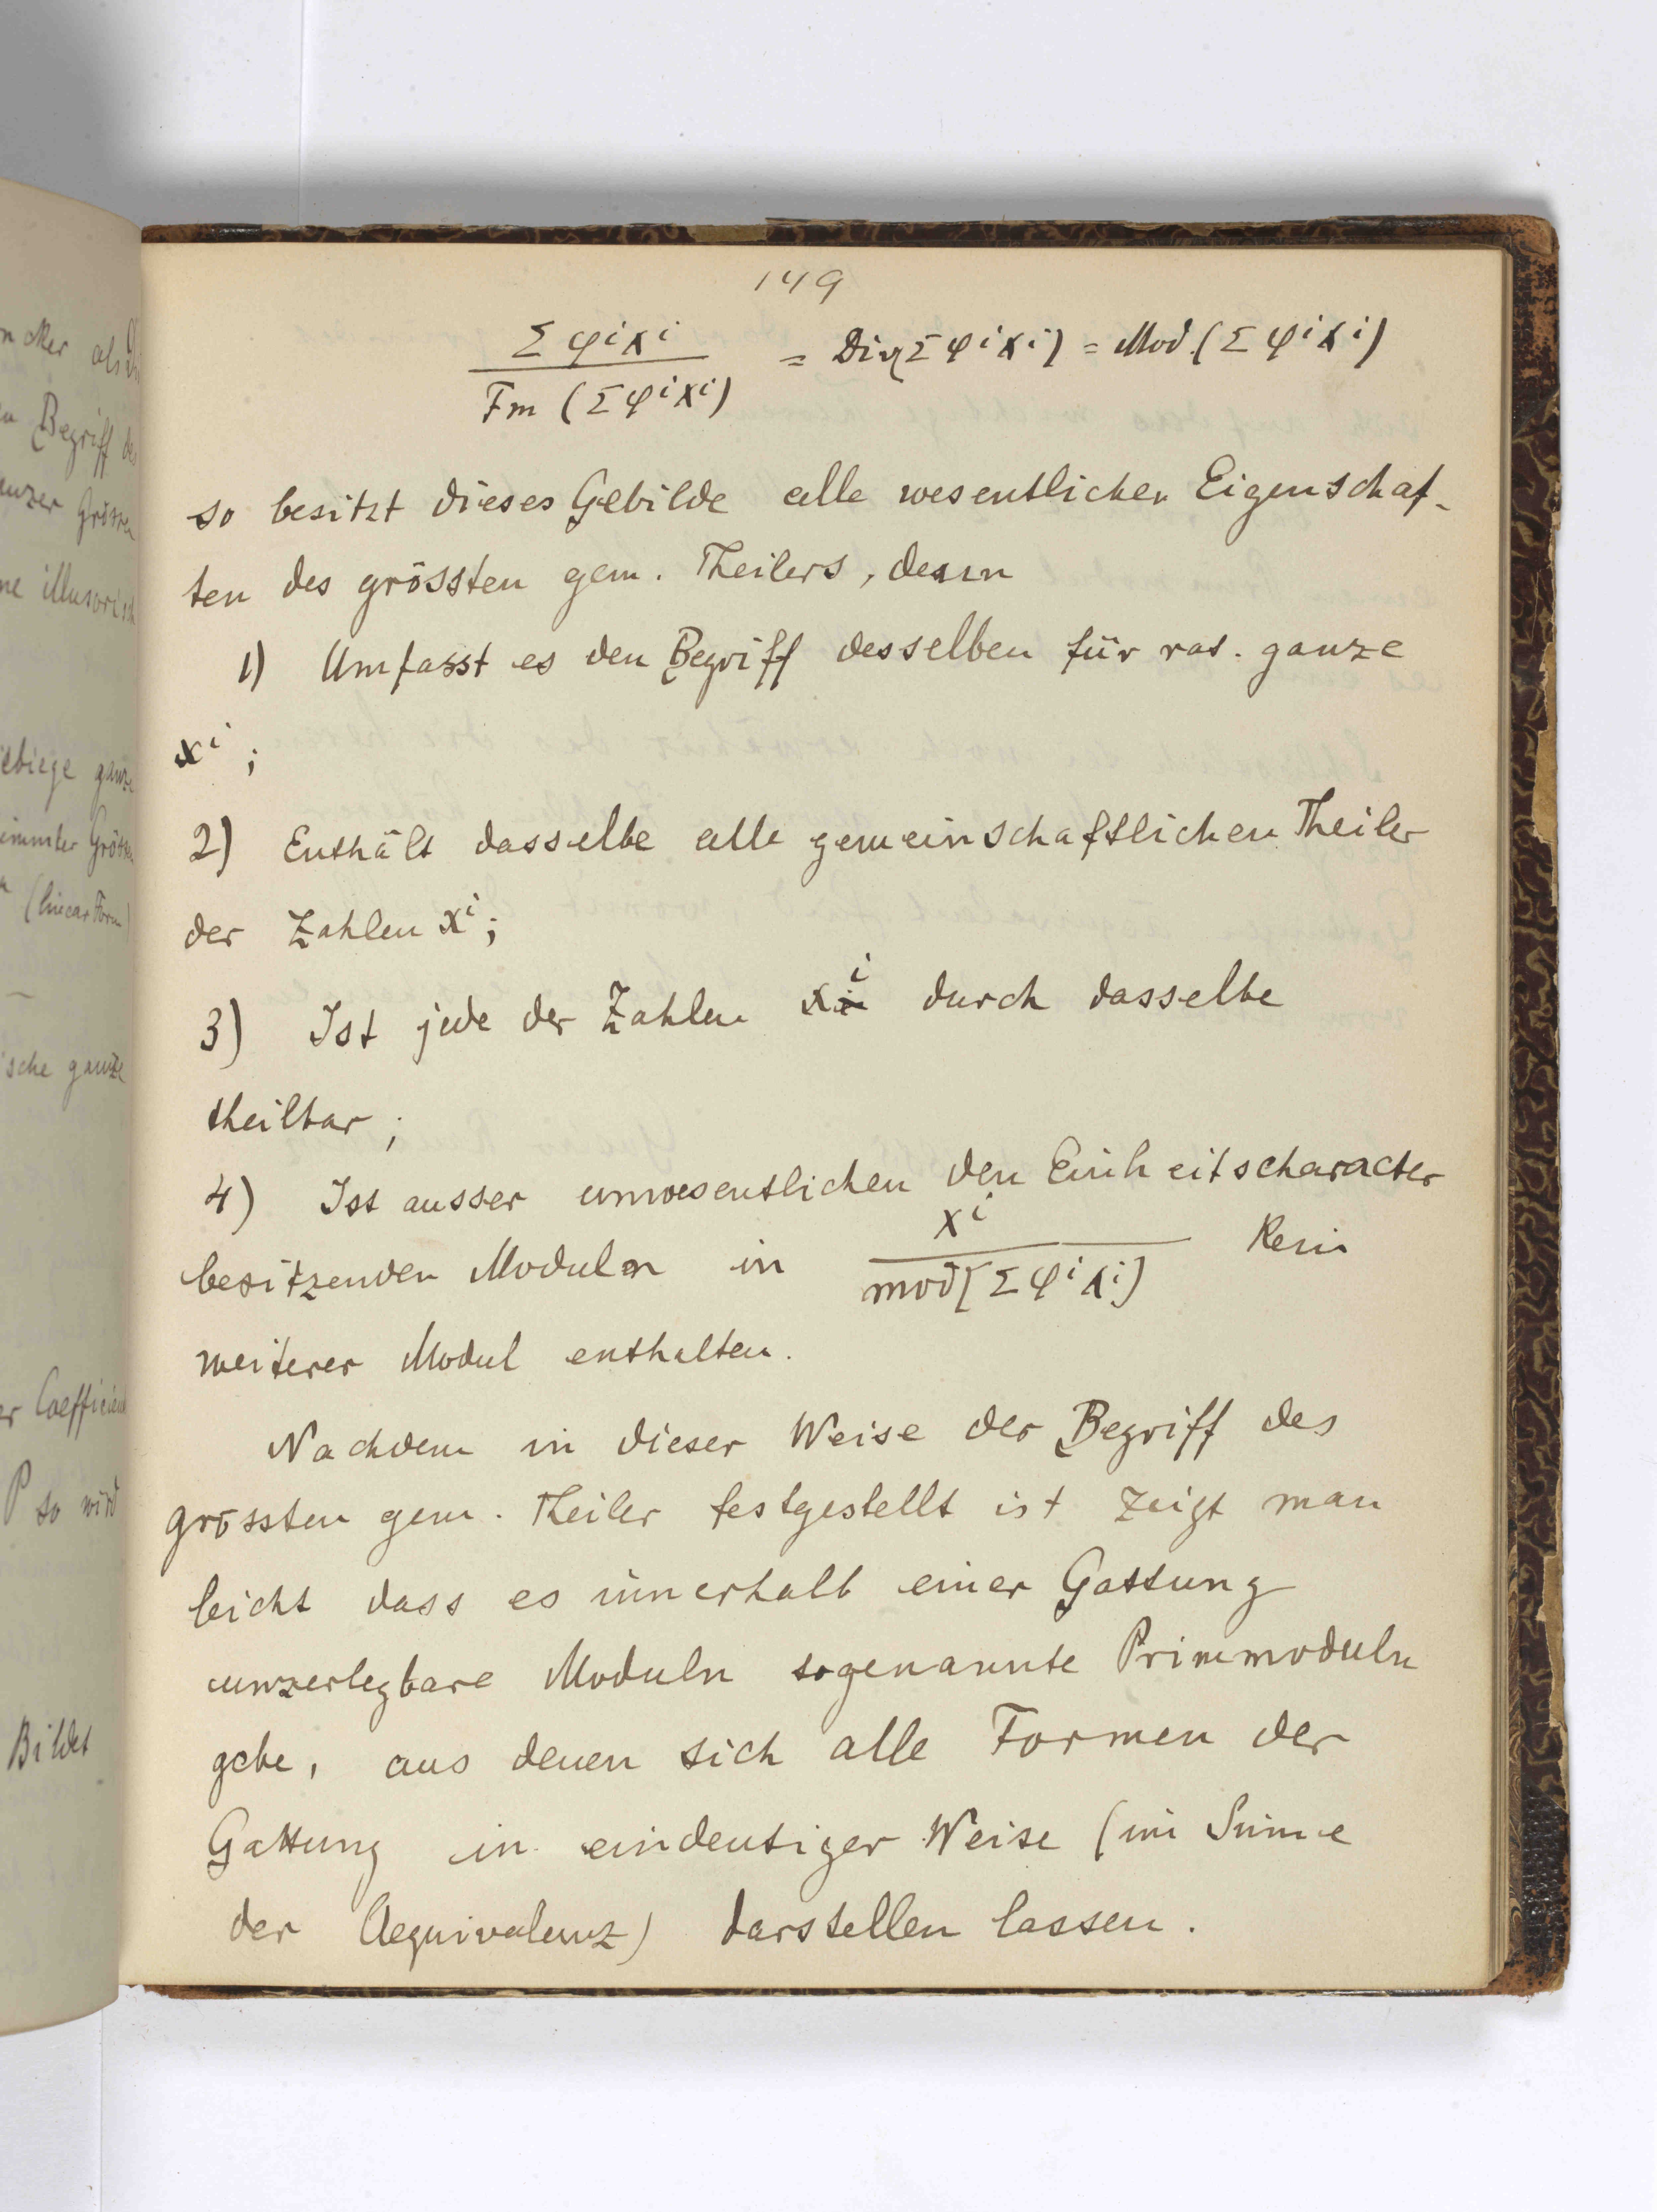 149
Σ φ^i x^i / Fm (Σ φ^i x^i) = Div(Σ φ^i x^i) = Mod.(Σ φ^i x^i)
so besitzt dieses Gebilde alle wesentlichen Eigenschaf-
ten des grössten gem. Theilers, denn
1) Umfasst es den Begriff desselben für rat. ganze
x^i ;
2) Enthält dasselbe alle gemeinschaftlichen Theiler
der Zahlen x^i;
3) Ist jede der Zahlen x^i durch dasselbe
theilbar ;
4) Ist ausser unwesentlichen den Einheitscharacter
besitzenden Moduln in x^i / mod(Σ φ^i x^i) kein
weiterer Modul enthalten.
Nachdem in dieser Weise der Begriff des
grössten gem. Theiler festgestellt ist zeigt man
leicht dass es innerhalb einer Gattung
unzerlegbare Moduln sogenannte Primmoduln
gebe, aus denen sich alle Formen der
Gattung in eindeutiger Weise (im Sinne
der Aequivalenz) darstellen lassen.
als
Begriff des
Grössen
illusorisch
ganze
Grössen
(linear Form)
ganze
Coefficient
P so wird
Bildet